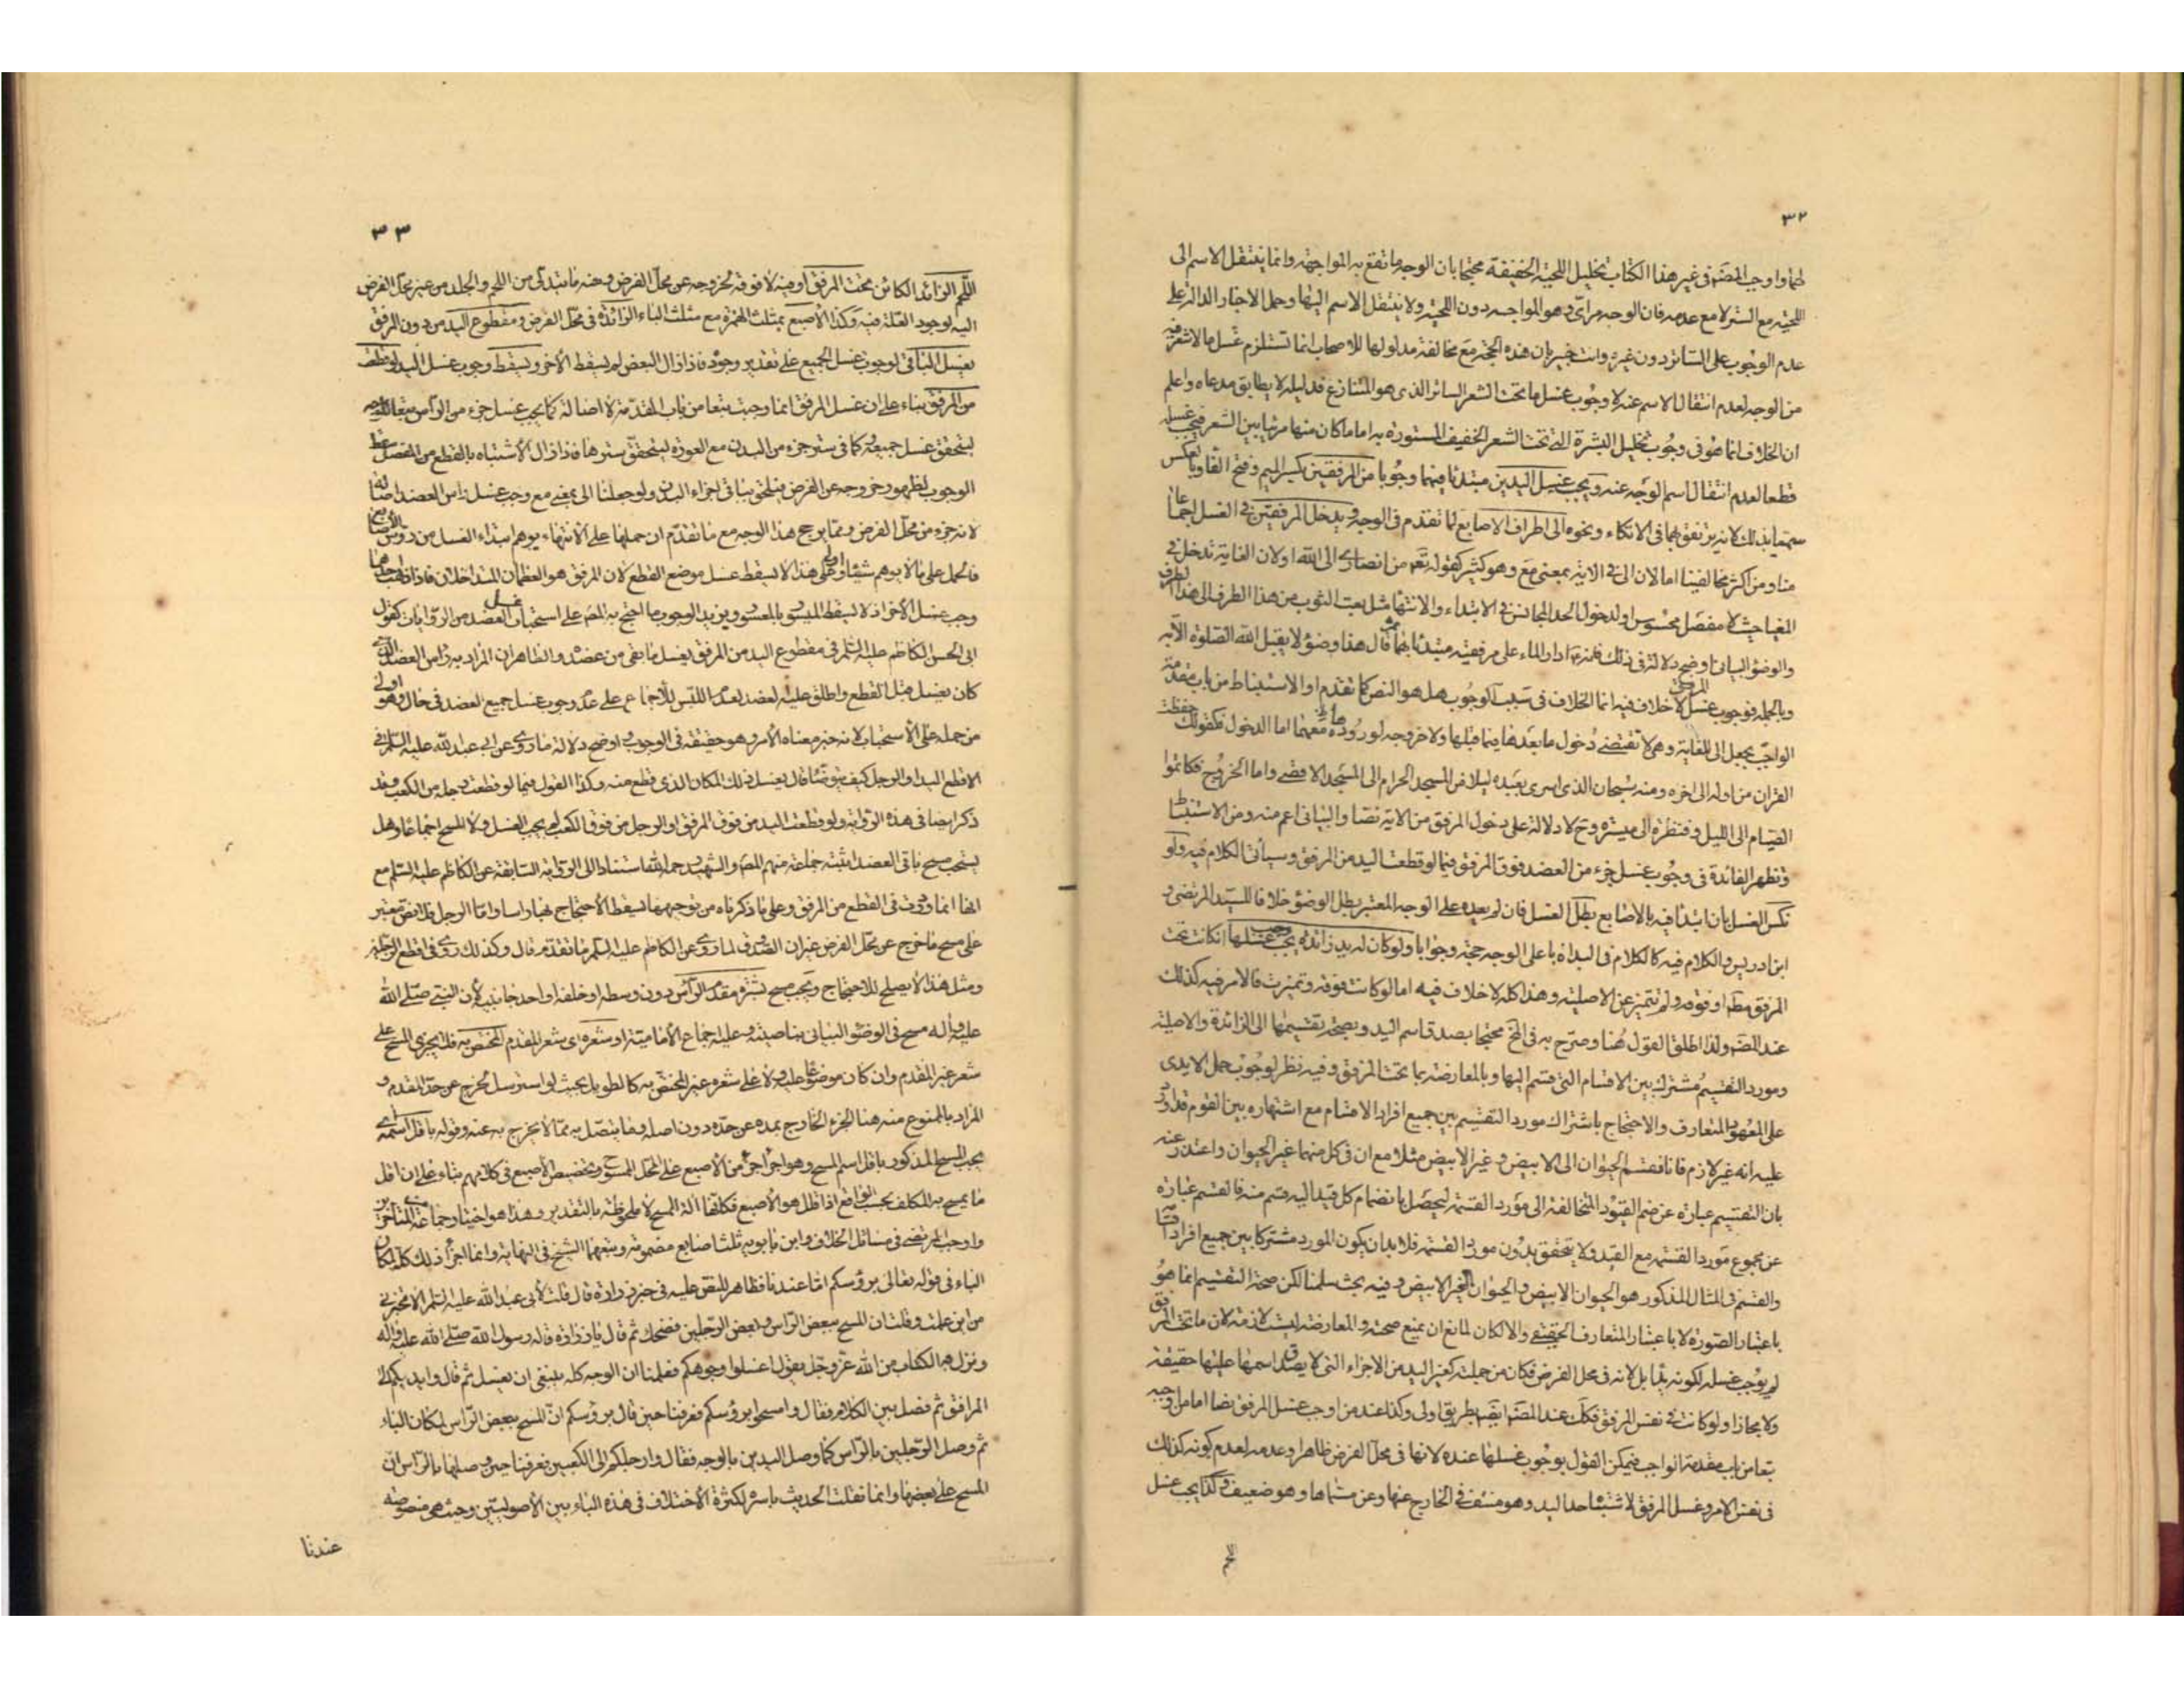 ٣٢
لهما واوجب المصنف في غير هذا الكتاب تخليل اللحية الخفيفة محتجا بان الوجه ما تقع به المواجهة وانما ينتقل الاسم الى
اللحية مع الستر لا مع عدمه فان الوجه مرائ وهو المواجه دون اللحية ولا ينتقل الاسم اليها وحمل الاخبار الدالة على
عدم الوجوب على الساتر دون غيره وانت خبير بان هذه الحجة مع مخالفة مدلولها للاصحاب انما تستلزم غسل ما لا شعر فيه
من الوجه لعدم انتقال الاسم عنه لا وجوب غسل ما تحت الشعر الساتر الذي هو المتنازع فدليله لا يطابق مدعاه واعلم
ان الخلاف انما هو في وجوب تخليل البشرة التي تحت الشعر الخفيف المستورة به اما ما كان منها مرئيا بين الشعر فيجب غسله
قطعا لعدم انتقال اسم الوجه عنه ويجب غسل اليدين مبتدئا فيهما وجوبا من المرفقين بكسر الميم وفتح الفاء وبالعكس
سميا بذلك لانه يرتفق بهما في الاتكاء ونحوه الى اطراف الاصابع لما تقدم في الوجه ويدخل المرفقين في الغسل اجماعا
منا ومن اكثر مخالفينا اما لان الى في الاية بمعنى مع وهو كثير كقوله تعم من انصاري الى الله او لان الغاية تدخل في
المغيا حيث لا مفصل محسوس او لدخول الحد المجانس في الابتداء والانتهاء مثل بعت الثوب من هذا الطرف الى هذا الطرف
والوضوء البياني اوضح دلالة في ذلك فانه ادار الماء على مرفقيه مبتدئا بهما ثم قال هذا وضوء لا يقبل الله الصلوة الا به
وبالجملة فوجوب غسل المرفق لا خلاف فيه انما الخلاف في سبب الوجوب هل هو النص كما تقدم او الاستنباط من باب مقدمة
الواجب بجعل الى للغاية وهي لا تقتضي دخول ما بعدها فيما قبلها ولا خروجه لوروده معهما اما الدخول فكقولك حفظت
القران من اوله الى اخره ومنه سبحان الذي اسرى بعبده ليلا من المسجد الحرام الى المسجد الاقصى واما الخروج فكاتموا
الصيام الى الليل وفنظرة الى ميسرة وح لا دلالة على دخول المرفق من الاية نصا والبياني اعم منه ومن الاستنباط
وتظهر الفائدة في وجوب غسل جزء من العضد فوق المرفق فيما لو قطعت اليد من المرفق وسياتي الكلام فيه ولو
نكس الغسل بان ابتدأ فيه بالاصابع بطل الغسل فان لم يعده على الوجه المعتبر بطل الوضوء خلافا للسيد المرتضى و
ابن ادريس والكلام فيه كالكلام في البداة باعلى الوجه حجة وجوابا ولو كان له يد زائدة يجب غسلها ان كانت تحت
المرفق مطلقا او فوقه ولم تتميز عن الاصلية وهذا كله لا خلاف فيه اما لو كانت فوقه وتميزت فالامر فيه كذلك
عند المصنف ولذا اطلق القول هنا وصرح به في المخ محتجا بصدق اسم اليد وبصحة تقسيمها الى الزائدة والاصلية
ومورد التقسيم مشترك بين الاقسام التي قسم اليها وبالمعارضة بما تحت المرفق وفيه نظر لوجوب حمل الايدي
على المعهود المتعارف والاحتجاج باشتراك مورد التقسيم بين جميع افراد الاقسام مع اشتهاره بين القوم قد اورد
عليه انه غير لازم فانا نقسم الحيوان الى الابيض وغير الابيض مثلا مع ان في كل منهما غير الحيوان واعتذر عنه
بان التقسيم عبارة عن ضم القيود المتخالفة الى مورد القسمة ليحصل بانضمام كل قيد اليه قسم منه فالقسم عبارة
عن مجموع مورد القسمة مع القيد ولا يتحقق بدون مورد القسمة فلا بد ان يكون المورد مشتركا بين جميع افراد اقسامه
والقسم في المثال المذكور هو الحيوان الابيض والحيوان الغير الابيض وفيه بحث سلمنا لكن صحة التقسيم انما هو
باعتبار الصورة لا باعتبار المتعارف الحقيقي والا لكان لمانع ان يمنع صحته والمعارضة ليست لازمة لان ما تحت المرفق
لم يوجب غسله لكونه يدا بل لانه في محل الفرض فكان من جملته كغير اليد من الاجزاء التي لا يصدق اسمها عليها حقيقة
ولا مجازا ولو كانت في نفس المرفق فكذلك عند المصنف ايضا بطريق اولى وكذا عند من اوجب غسل المرفق نصا اما من اوجبه
تبعا من باب مقدمة الواجب فيمكن القول بوجوب غسلها عنده لانها في محل الفرض ظاهرا وعدمه لعدم كونه كذلك
في نفس الامر وغسل المرفق لاشتباه حد اليد وهو منتف في الخارج عنها وعن مسماها وهو ضعيف وكذا يجب غسل
اللحم
٣٣
اللحم الزائد الكائن تحت المرفق او فيه لا فوقه لخروجه عن محل الفرض ومنه ما يتدلى من اللحم والجلد من غير محل الفرض
اليه لوجود العلة فيه وكذا الاصبع بمثلث الهمزة مع مثلث الباء الزائدة في محل الفرض ومقطوع اليد من دون المرفق
يغسل الباقي لوجوب غسل الجميع على تقدير وجوده فاذا زال البعض لم يسقط الاخر ويسقط وجوب غسل اليد لو قطعت
من المرفق بناء على ان غسل المرفق انما وجب تبعا من باب المقدمة لا اصالة كما يجب غسل جزء من الراس تبعا للوجه
ليتحقق غسل جميعه وكما في ستر جزء من البدن مع العورة ليتحقق سترها فاذا زال الاشتباه بالقطع من المفصل سقط
الوجوب لظهور خروجه عن الفرض فيلحق بباقي اجزاء البدن ولو جعلنا الى بمعنى مع وجب غسل راس العضد اصالة
لانه جزء من محل الفرض ومما يرجح هذا الوجه مع ما تقدم ان حملها على الانتهاء يوهم ابتداء الغسل من رؤس الاصابع
فالحمل على ما لا يوهم شيئا اولى وعلى هذا لا يسقط غسل موضع القطع لان المرفق هو العظمان المتداخلان فاذا ذهب احدهما
وجب غسل الاخر اذ لا يسقط الميسور بالمعسور ويزيد الوجوب ما احتج به المصنف على استحباب غسل العضد من الروايات كقول
ابى الحسن الكاظم عليه السلم في مقطوع اليد من المرفق يغسل ما بقى من عضده والظاهر ان المراد به راس العضد الذي
كان يغسل قبل القطع واطلق عليه العضد لعدم اللبس للاجماع على عدم وجوب غسل جميع العضد في حال وهو اولى
من حمله على الاستحباب لانه خبر معناه الامر وهو حقيقة في الوجوب واوضح دلالة ما روى عن ابى عبد الله عليه السلم في
الاقطع اليد والرجل كيف يتوضأ قال يغسل ذلك المكان الذي قطع منه وكذا القول فيما لو قطعت رجله من الكعب وقد
ذكر ايضا في هذه الرواية ولو قطعت اليد من فوق المرفق او الرجل من فوق الكعب لم يجب الغسل ولا المسح اجماعا وهل
يستحب مسح باقي العضد اثبته جماعة منهم المصنف والشهيد رحمه الله استنادا الى الرواية السابقة عن الكاظم عليه السلم مع
انها انما وردت في القطع من المرفق وعلى ما ذكرناه من توجيهها يسقط الاحتجاج بها راسا واما الرجل فلا نص معتبر
على مسح ما خرج عن محل الفرض غير ان الصدوق لما روى عن الكاظم عليه السلم ما تقدم قال وكذلك روى في اقطع الرجلين
ومثل هذا لا يصلح للاحتجاج ويجب مسح بشرة مقدم الراس دون وسطه او خلفه او احد جانبيه لان النبي صلى الله
عليه واله مسح في الوضوء البياني بناصيته وعليه اجماع الامامية او شعره اى شعر المقدم المختص به فلا يجزى المسح على
شعر غير المقدم وان كان موضوعا عليه ولا على شعره غير المختص به كالطويل بحيث لو استرسل لخرج عن حد المقدم و
المراد بالممنوع منه هنا الجزء الخارج بمده عن حده دون اصله وما يتصل به مما لا يخرج به عنه وقوله باقل اسمه اى
يجب المسح المذكور باقل اسم المسح وهو اجراء جزء من الاصبع على المحل الممسوح وتخصيص الاصبع في كلامهم بناء على ان اقل
ما يمسح به المكلف بحسب الواقع اذا ظل هو الاصبع فكانها الة المسح لا ملحوظة بالتقدير وهذا هو اختيار جماعة المتاخرين
واوجب المرتضى في مسائل الخلاف وابن بابويه ثلث اصابع مضمومة وتبعهما الشيخ في النهاية وانما اجزأ ذلك كله لمكان
الباء في قوله تعالى برؤسكم اما عندنا فظاهر للنص عليه في خبر زرارة قال قلت لابى عبد الله عليه السلم الا تخبرني
من اين علمت وقلت ان المسح ببعض الراس وبعض الرجلين فضحك ثم قال يا زرارة قاله رسول الله صلى الله عليه واله
ونزل به الكتاب من الله عز وجل يقول اغسلوا وجوهكم فعلمنا ان الوجه كله ينبغى ان يغسل ثم قال وايديكم الى
المرافق ثم فصل بين الكلام فقال وامسحوا برؤسكم فعرفنا حين قال برؤسكم ان المسح ببعض الراس لمكان الباء
ثم وصل الرجلين بالراس كما وصل اليدين بالوجه فقال وارجلكم الى الكعبين فعرفنا حين وصلها بالراس ان
المسح على بعضها وانما نقلت الحديث باسره لكثرة الاختلاف في هذه الباء بين الاصوليين وحيث هي منصوصة
عندنا